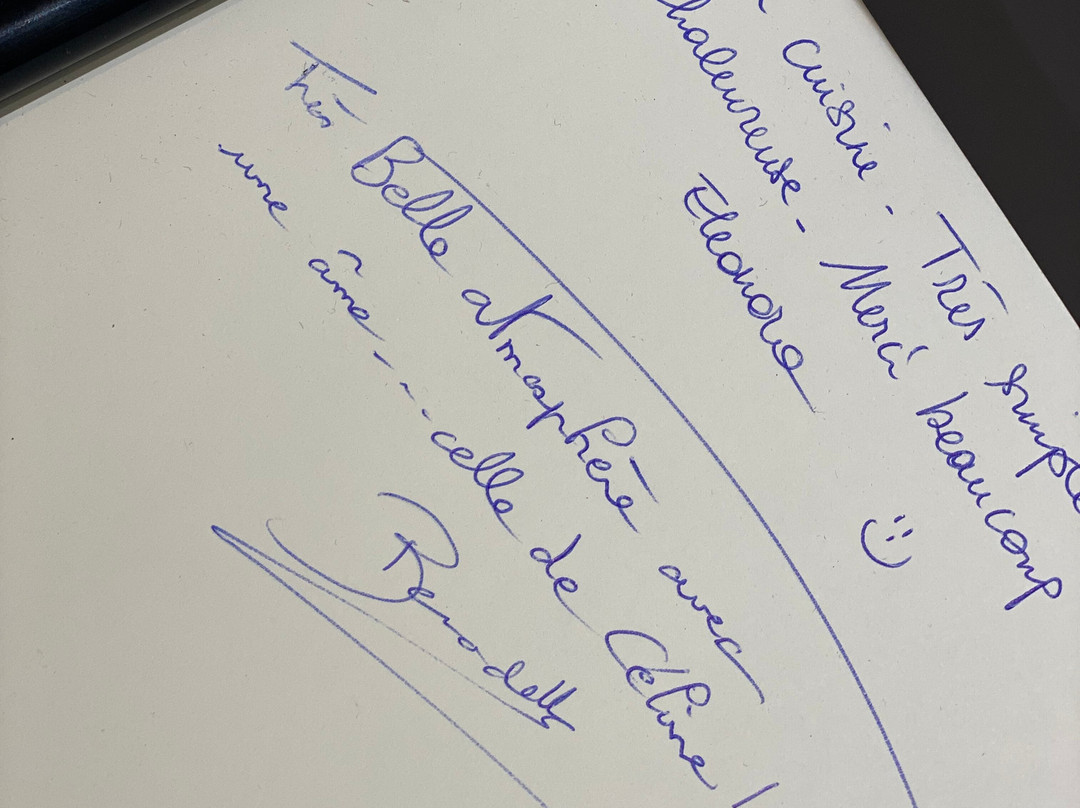 cuisine - Très simple
chaleureuse - Merci beaucoup
Eleonora :)
Très Belle atmosphère avec
une âme... celle de Céline !